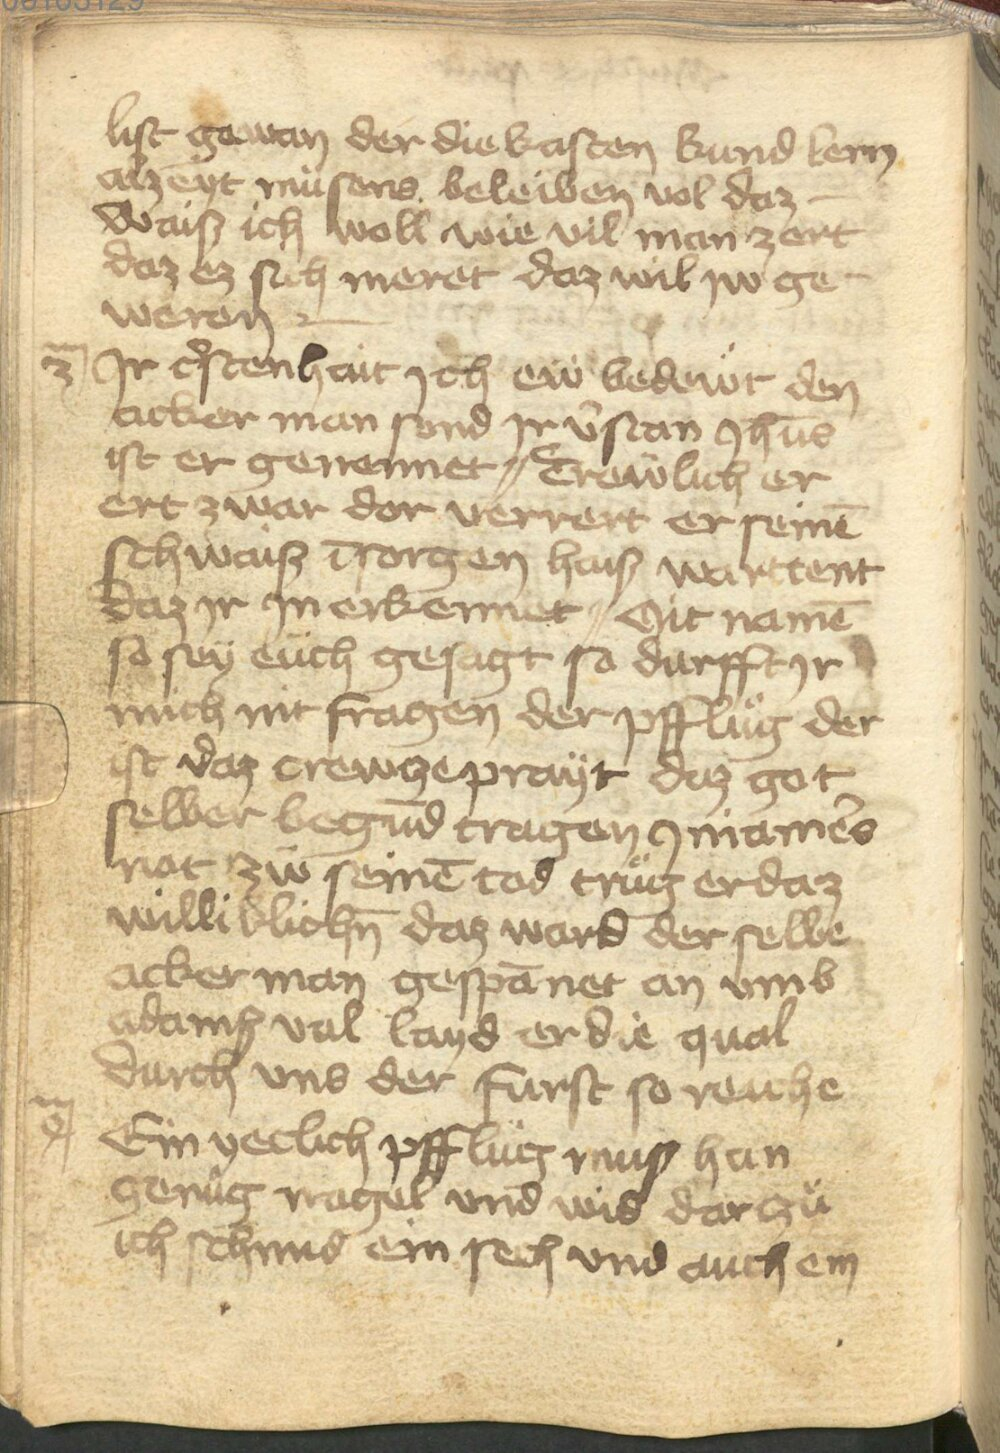 00105129
list gewan der die kasten kund lern
alzeyt müsens beleiben vol daz
Waiß ich woll wie vil man zert
daz ez sich meret daz wil jw ge-
weren
3 Jr cr̄stenhait jch ew bedewt den
acker man sond jr v̄stan jhūs
ist er genennet // Trewlich er
ert zwar dor verrert er seinē
schwaiß ī sorgen haiß warttent
daz jr jn erkennet // Mit namē
so sey euch gesagt so durfft jr
mich nit fragen der pfflüg der
ist daz crewcze prayt daz got
selber begūnd tragen
not zw seinē tod trüg er daz
williklichn̄ daz ward der selbe
acker man gespānet an vmb
adams val layd er die qual
durch vns der furst so reiche
Ein yeclich pfflüg muß han
genüg nagel vnd wid darzü
ich schmid ein sech vnd auch ein